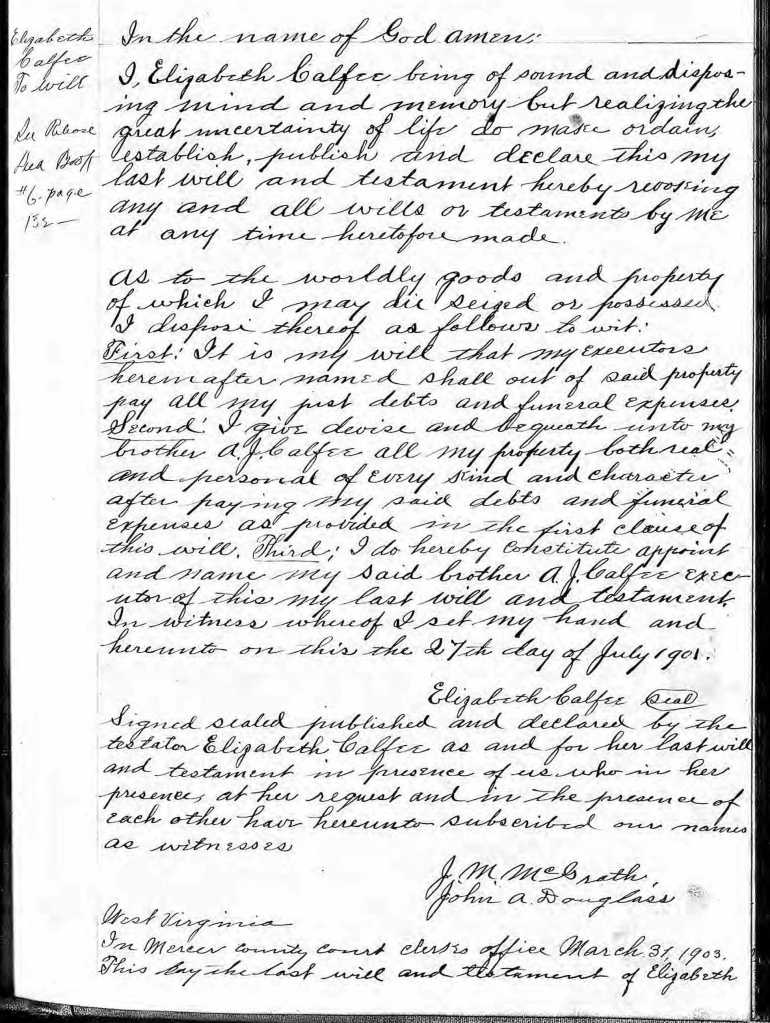 Elizabeth
Calfee
To will
See Release
Deed Book
#6. page
In the name of God amen:
I, Elizabeth Calfee being of sound and dispos-
ing mind and memory but realizing the
great uncertainty of life do make ordain,
establish, publish and declare this my
last will and testament hereby revoking
any and all wills or testaments by me
at any time heretofore made.
As to the worldly goods and property
of which I may die seized or possessed
I dispose thereof as follows to wit:
First: It is my will that my executors
hereinafter named shall out of said property
pay all my just debts and funeral expenses.
Second: I give devise and bequeath unto my
brother A.J. Calfee all my property both real
and personal of every kind and character
after paying my said debts and funeral
expenses as provided in the first clause of
this will. Third; I do hereby constitute appoint
and name my said brother A.J. Calfee exec-
utor of this my last will and testament.
In witness whereof I set my hand and
hereunto on this the 27th day of July 1901.
Elizabeth Calfee seal
Signed sealed published and declared by the
testator Elizabeth Calfee as and for her last will
and testament in presence of us who in her
presence, at her request and in the presence of
each other have hereunto subscribed our names
as witnesses
J. M. McGrath,
John A. Douglass
West Virginia
In Mercer county court clerks office March 31, 1903.
This day the last will and testament of Elizabeth